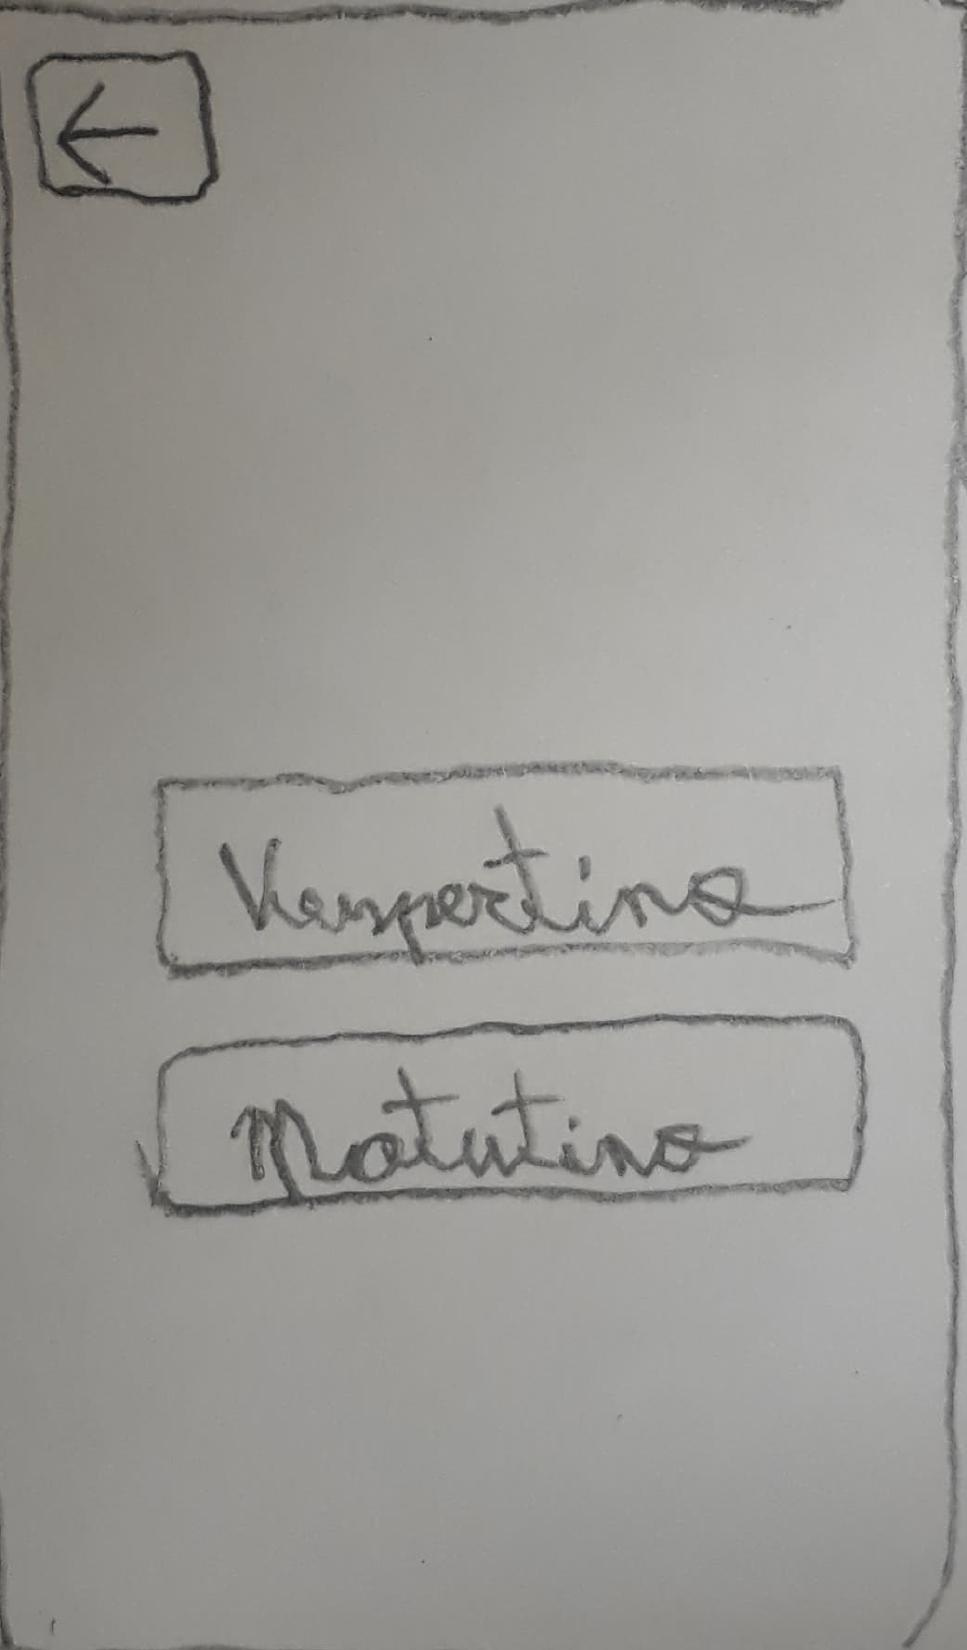 Vespertino
Matutino